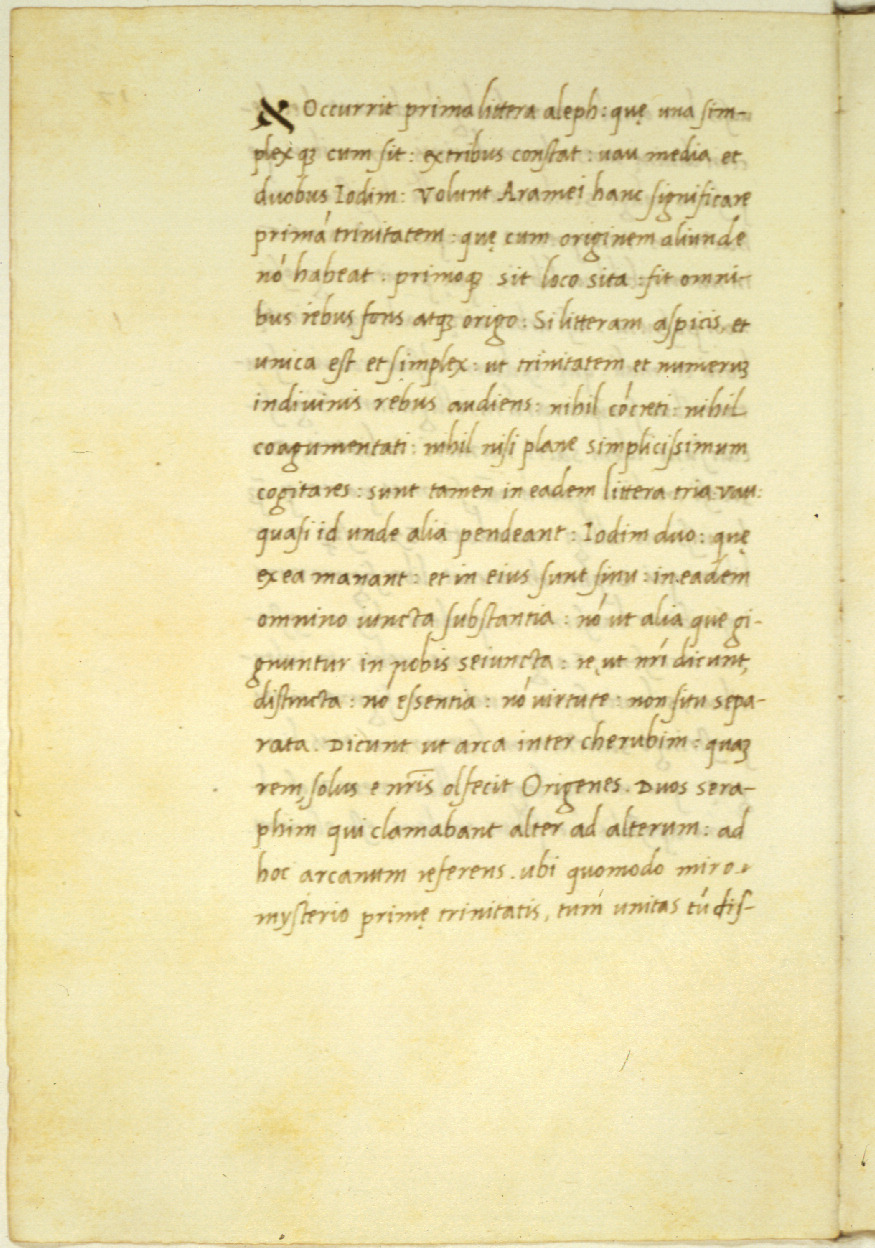 א Occurrit prima littera aleph: quę una sim-
plex q3 cum sit: ex tribus constat: uau media et
duobus Iodim: Volunt Aramei hanc significare
primá trinitatem: quę cum originem aliunde
nó habeat. primoq3 sit loco sita: fit omni-
bus rebus fons atq3 origo: Si litteram aspicis, et
unica est et simplex: ut trinitatem et numeru3
in diuinis rebus audiens: nihil cócreti: nihil
coagumentati: nihil nisi plane simplicissimum
cogitares: sunt tamen in eadem littera tria: vau:
quasi id unde alia pendeant: Iodim duo: quę
ex ea manant: et in eius sunt sinu: in eadem
omnino iuncta substantia: nó ut alia que gi-
gnuntur in nobis seiuncta: re, ut nrí dicunt,
distincta: nó essentia: nó uirtute: non situ sepa-
rata. Dicunt ut arca inter cherubim: qua3
rem, solus e nrīs olfecit Origenes. Duos sera-
phim qui clamabant alter ad alterum: ad
hoc arcanum referens. ubi quomodo miro
mysterio primę trinitatis, tum unitas tú dis-